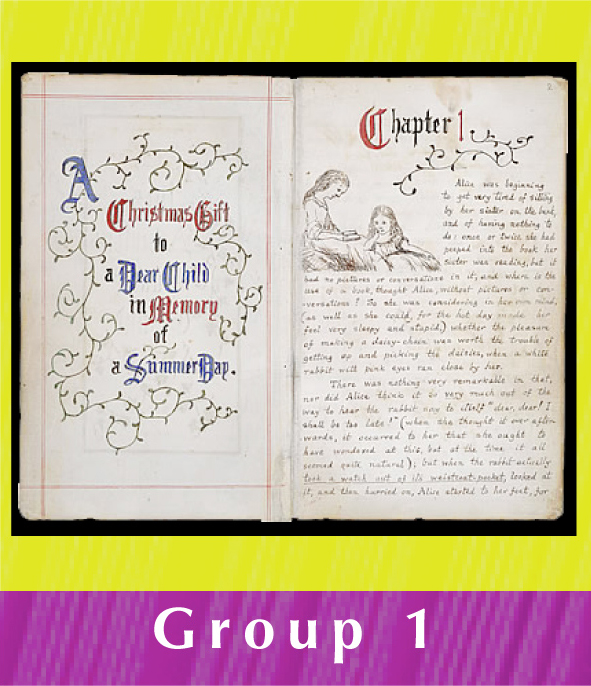 A
Christmas Gift
to
a Dear Child
in Memory
of
a Summer Day.
2
Chapter 1
Alice was beginning
to get very tired of sitting
by her sister on the bank,
and of having nothing to
do: once or twice she had
peeped into the book her
sister was reading, but it
had no pictures or conversations in it, and where is the
use of a book, thought Alice, without pictures or con-
versations? So she was considering in her own mind,
(as well as she could, for the hot day made her
feel very sleepy and stupid,) whether the pleasure
of making a daisy-chain was worth the trouble of
getting up and picking the daisies, when a white
rabbit with pink eyes ran close by her.
There was nothing very remarkable in that,
nor did Alice think it so very much out of the
way to hear the rabbit say to itself "dear, dear! I
shall be too late!" (when she thought it over after-
wards, it occurred to her that she ought to
have wondered at this, but at the time it all
seemed quite natural); but when the rabbit actually
took a watch out of its waistcoat-pocket, looked at
it, and then hurried on, Alice started to her feet, for
Group 1